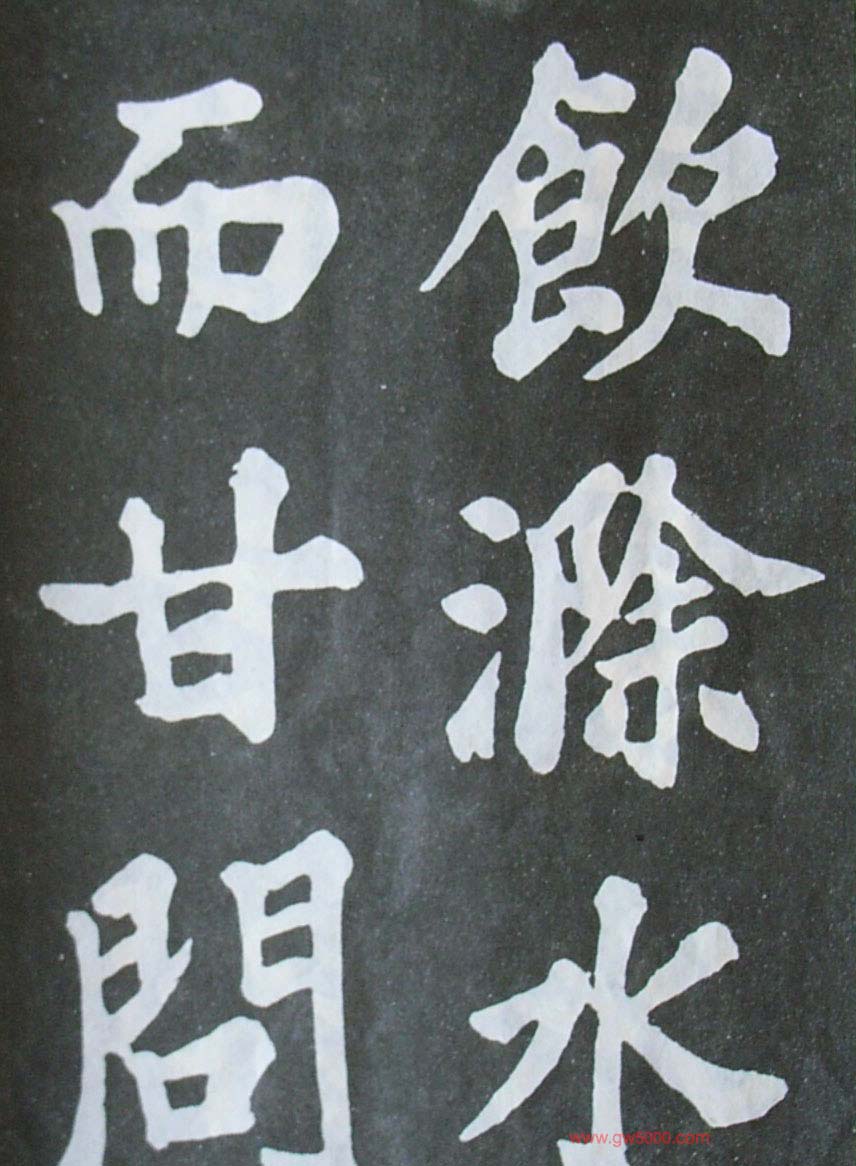 飲滁水
而甘問
www.gw5000.com